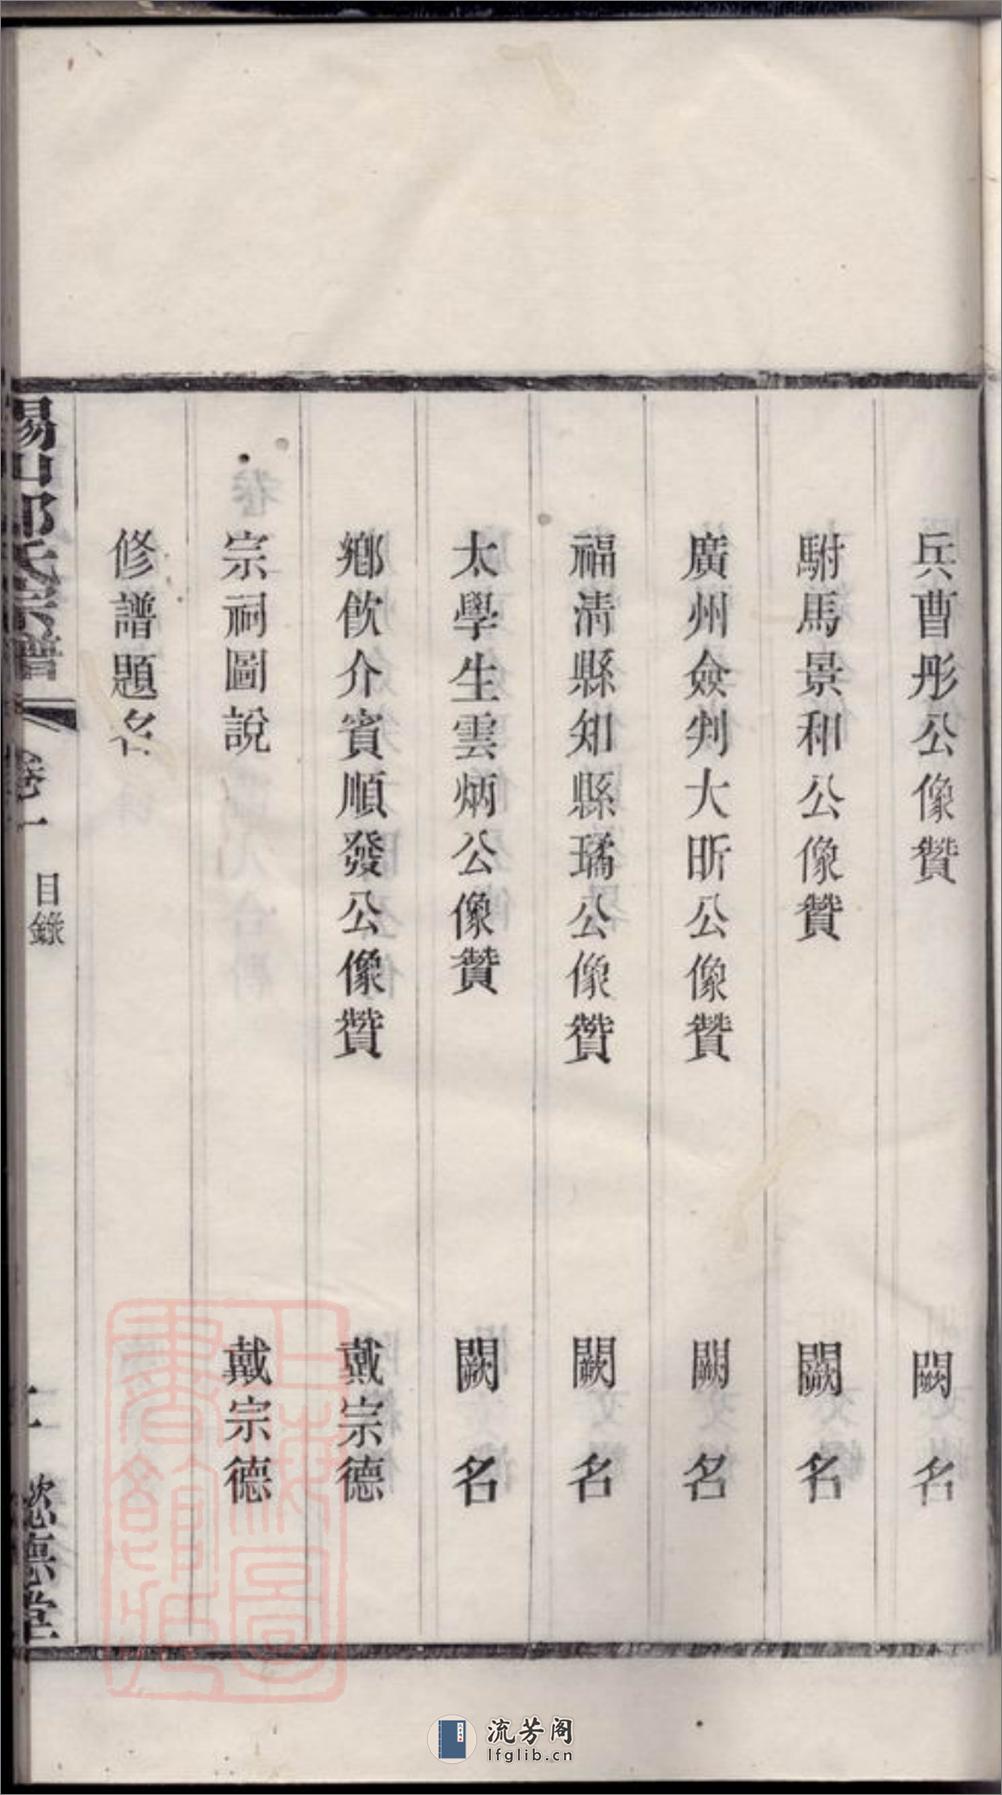 兵曹彤公像贊 闕名
駙馬景和公像贊 闕名
廣州僉判大昕公像贊 闕名
福清縣知縣璚公像贊 闕名
太學生雲炳公像贊 闕名
鄕飲介賓順發公像贊 戴宗德
宗祠圖說 戴宗德
修譜題名
錫山 氏宗譜 卷一 目錄 二 懿德堂
上海圖書館藏
流芳阁
lfglib.cn